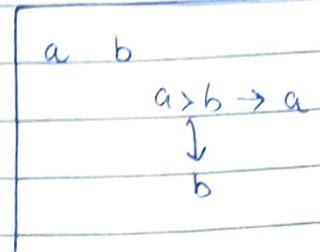 a b
a > b → a
↓
b